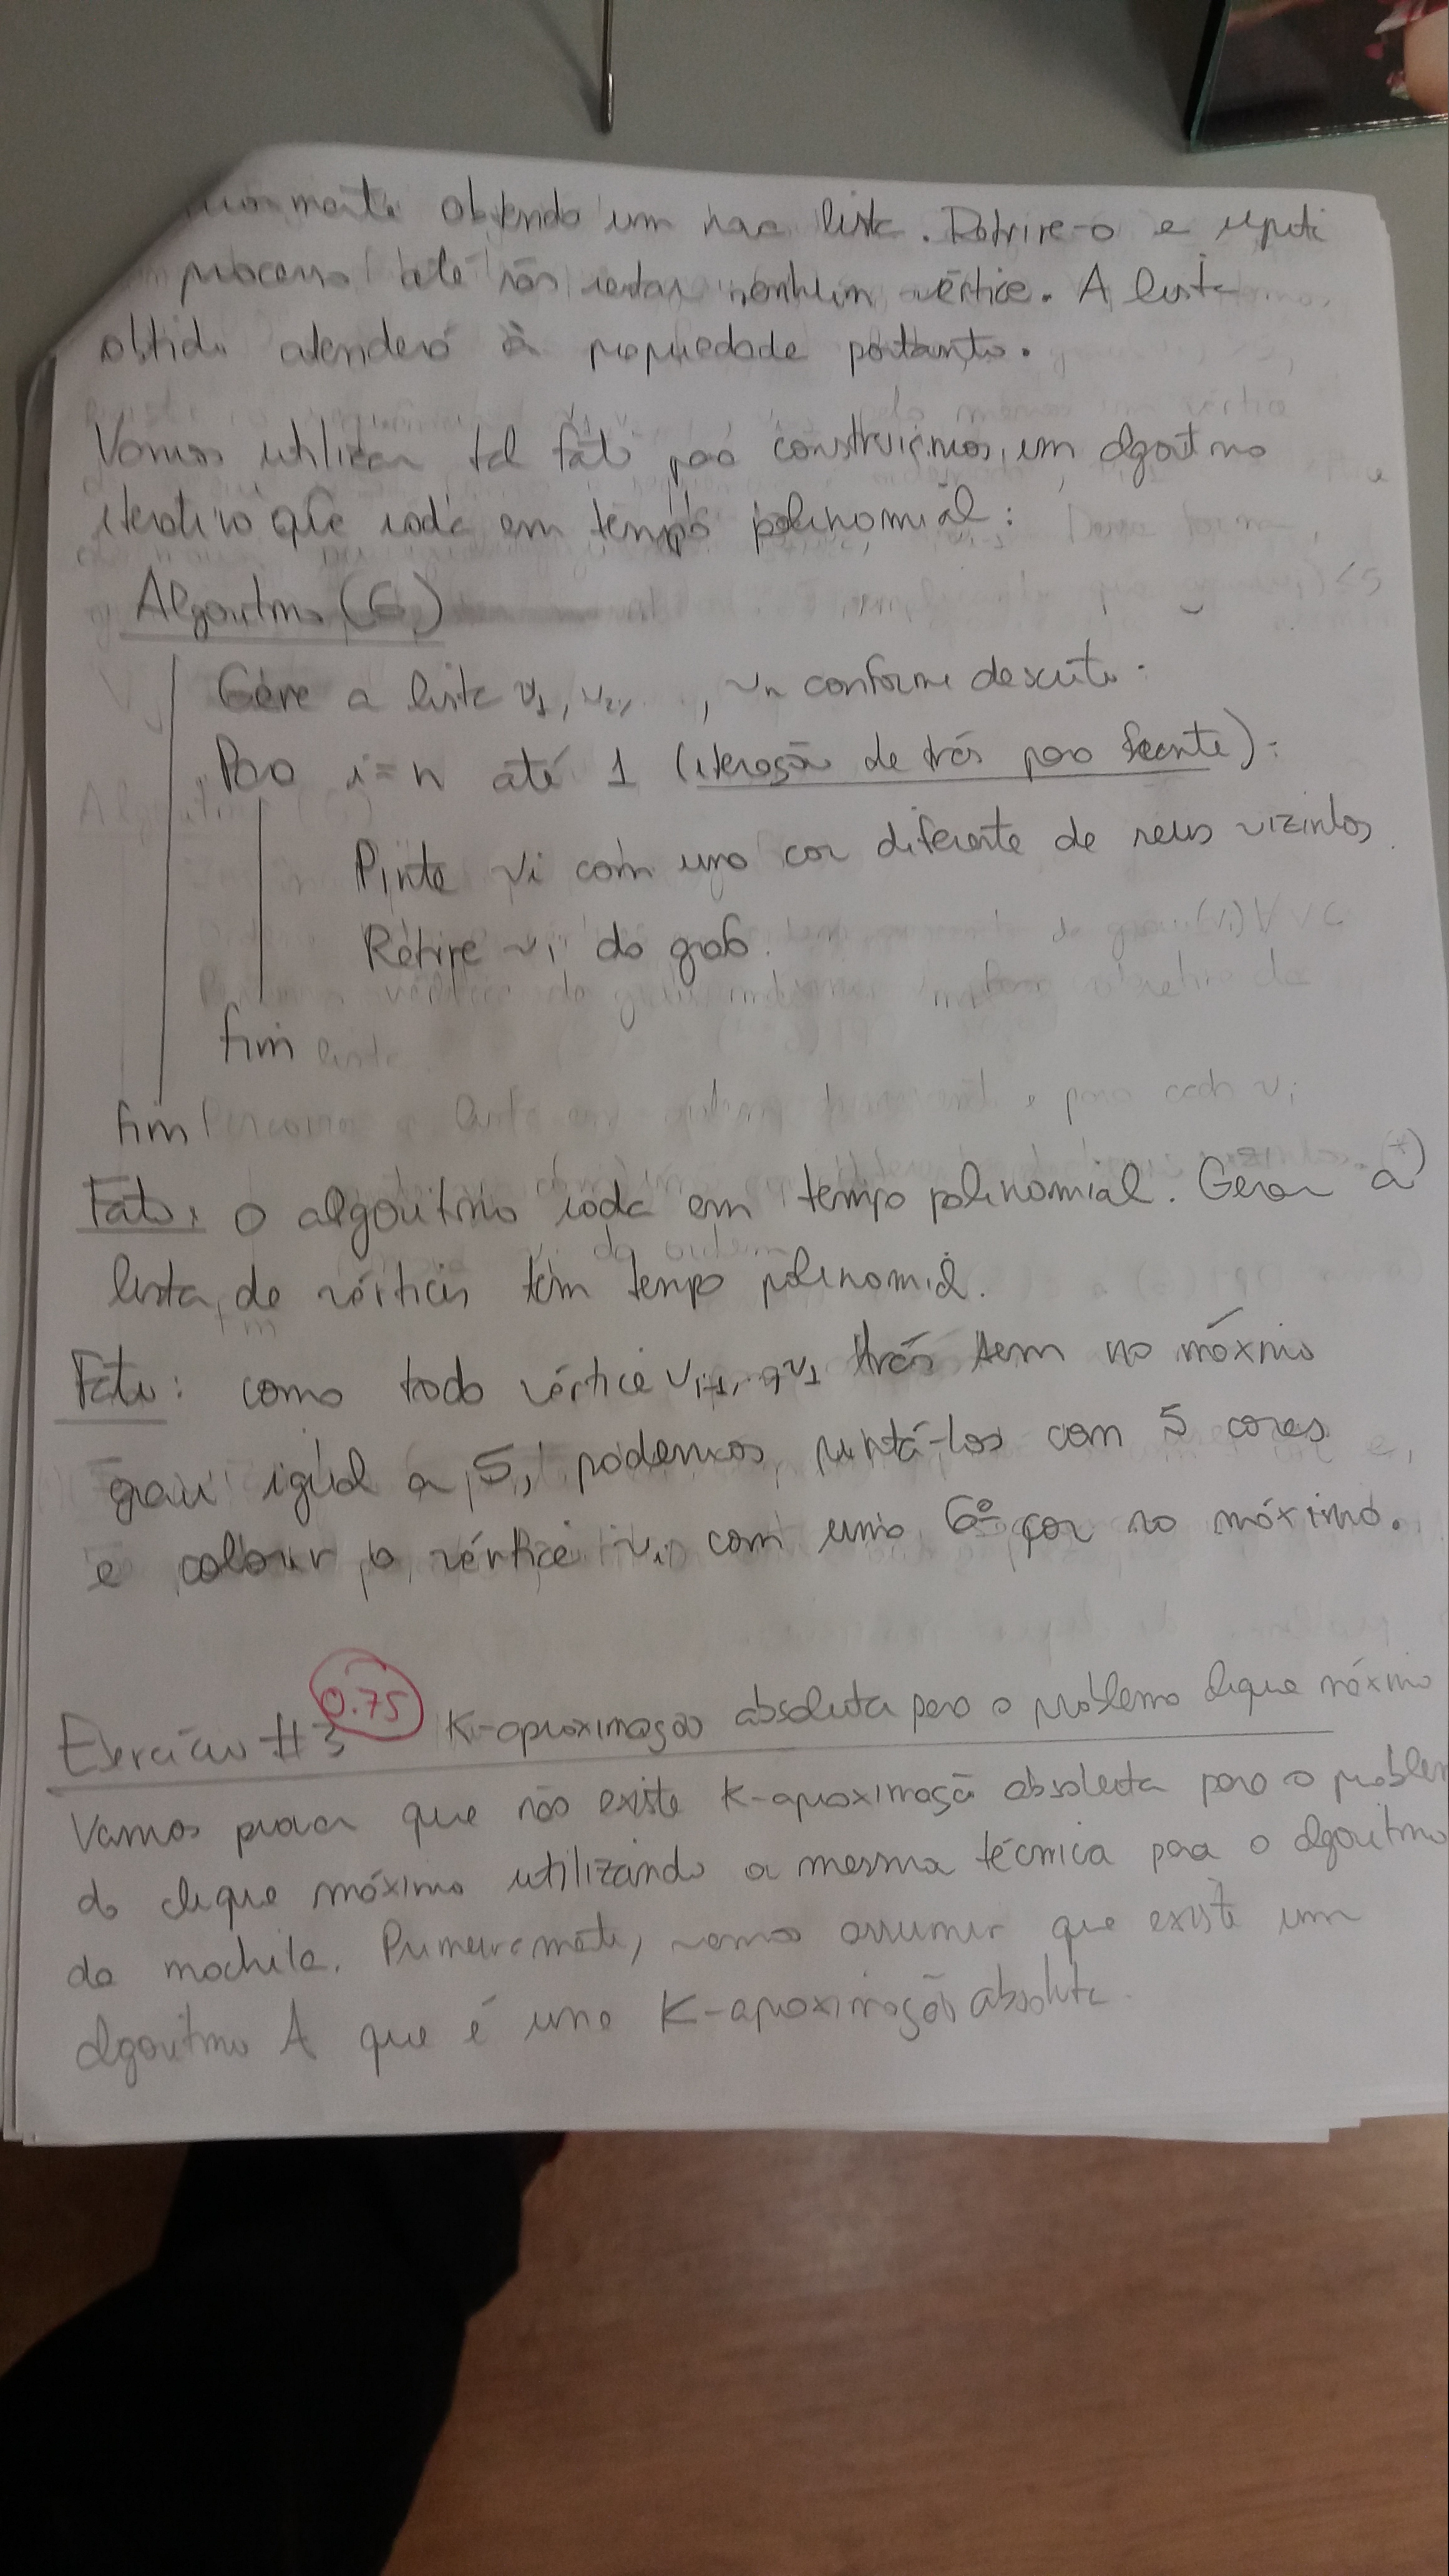 obtendo um na lista. Retire-o e repita
processo até não restar nenhum vértice. A lista
obtida atenderá à propriedade portanto.
Vamos utilizar tal fato para construirmos um algoritmo
iterativo que roda em tempo polinomial:
Algoritmo (G)
Gere a lista v1, v2, , vn conforme descrito.
Para i=n até 1 (iteração de trás para frente):
Pinte vi com uma cor diferente de seus vizinhos.
Retire vi do grafo.
fim
fim
Fato: o algoritmo roda em tempo polinomial. Gerar a (*)
lista de vértices tem tempo polinomial.
Fato: como todo vértice vi-1, , v1 terão no máximo
grau igual a 5, podemos pintá-los com 5 cores
e colorir o vértice vi com uma 6ª cor no máximo.
Exercício #3 0.75 K-aproximação absoluta para o problema clique máximo
Vamos provar que não existe K-aproximação absoluta para o problem
do clique máximo utilizando a mesma técnica para o algoritmo
da mochila. Primeiramente, vamos assumir que existe um
algoritmo A que é uma K-aproximação absoluta.